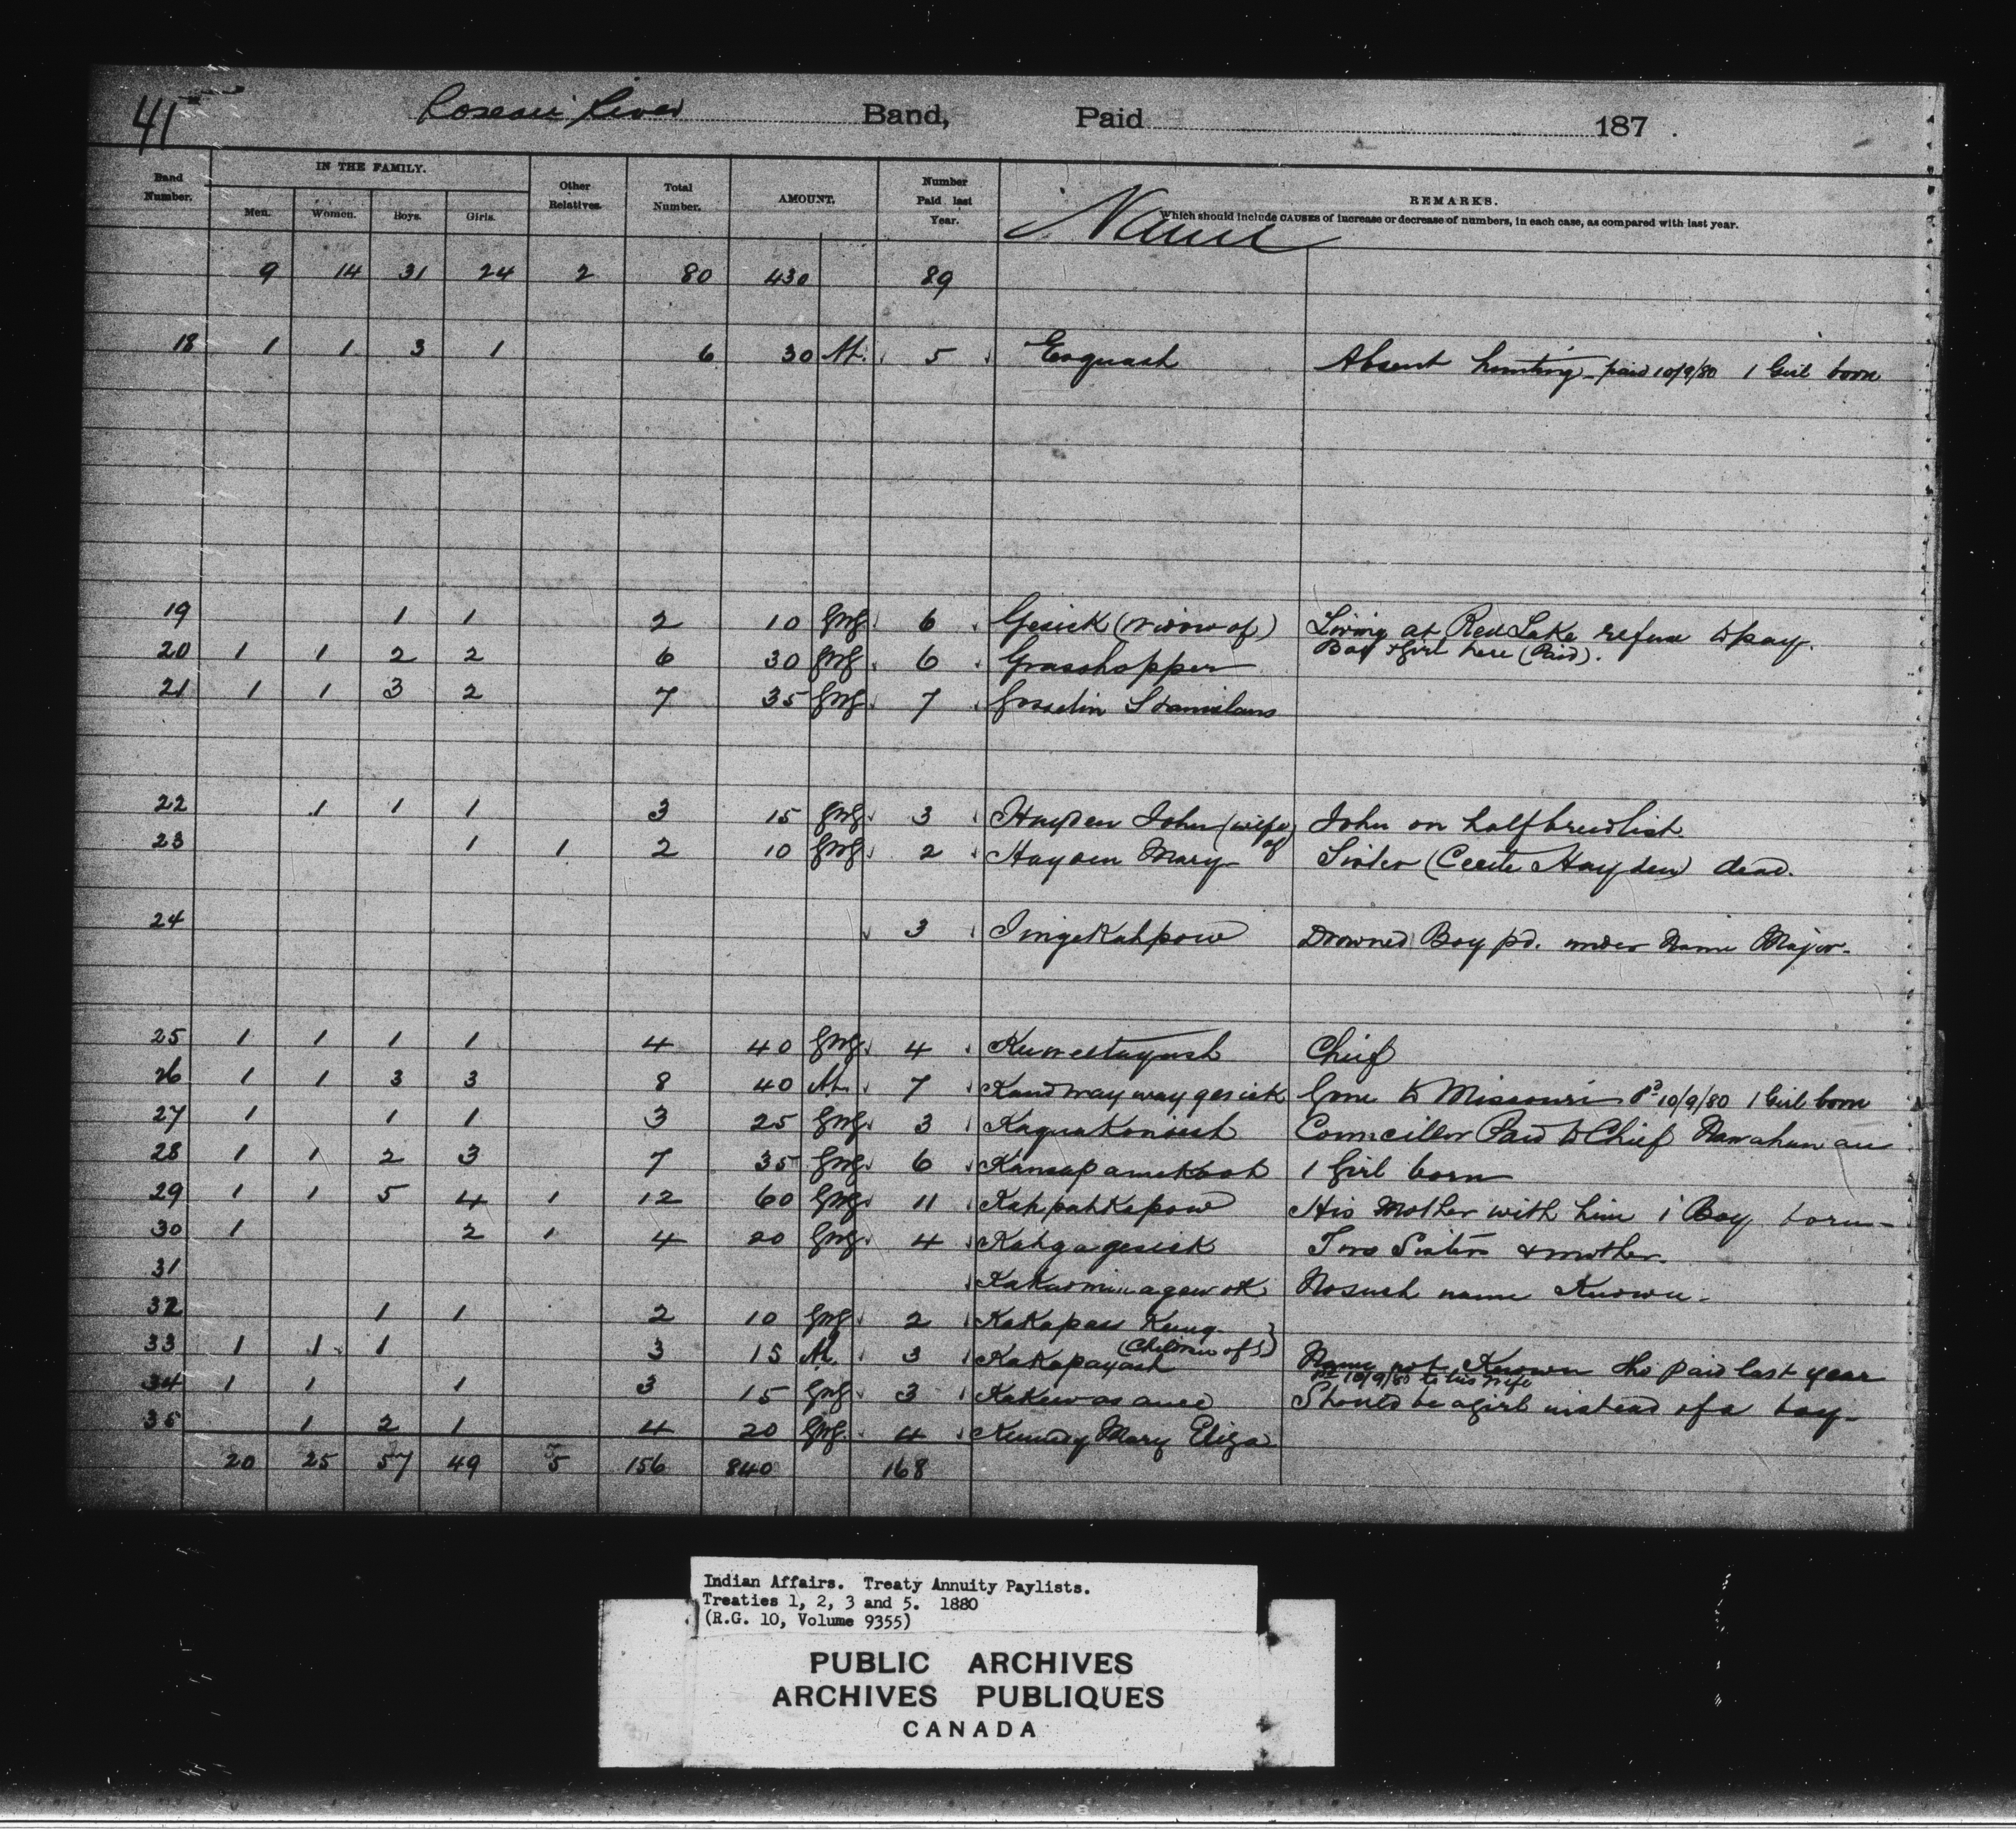 41
Roseau River Band, Paid 187 .
Band Number. IN THE FAMILY. Men. Women. Boys. Girls. Other Relatives. Total Number. AMOUNT. Number Paid last Year. Name REMARKS.
Which should include CAUSES of increase or decrease of numbers, in each case, as compared with last year.
9 14 31 24 2 80 430 89
18 1 1 3 1 6 30 5 Esquash Absent hunting - paid 10/9/80 1 Girl born
19 1 1 2 10 6 Gesick (Widow of) Living at Red Lake refuse to pay.
Boy & girl here (Paid).
20 1 1 2 2 6 30 6 Grasshopper
21 1 1 3 2 7 35 7 Gosselin Stanislaus
22 1 1 1 3 15 3 Hayden John (wife of) John on halfbreed list
23 1 1 2 10 2 Hayden Mary Sister (Cecile Hayden) dead.
24 3 Inigekahpow Drowned Boy pd. under Name Major-
25 1 1 1 1 4 40 4 Kuweetayash Chief
26 1 1 3 3 8 40 7 Kandwaywaygesick Gone to Missouri Pd 10/9/80 1 Girl born
27 1 1 1 3 25 3 Kaguakonish Councillor Paid to Chief
28 1 1 2 3 7 35 6 1 Girl born
29 1 1 5 4 1 12 60 11 Kahpahkapow His Mother with him 1 Boy born-
30 1 2 1 4 20 4 Kahgagesick Two Sisters & mother.
31 No such name Known.
32 1 1 2 10 2 Kakapass Keung
(Children of)
33 1 1 1 3 15 3 Kakapayash Name not Known tho paid last year
Pd 10/9/80 to his wife
34 1 1 1 3 15 3 Kakewasance Should be a girl instead of a boy-
35 1 2 1 4 20 4 Kennedy Mary Eliza
20 25 57 49 5 156 840 168
Indian Affairs. Treaty Annuity Paylists.
Treaties 1, 2, 3 and 5. 1880
(R.G. 10, Volume 9355)
PUBLIC ARCHIVES
ARCHIVES PUBLIQUES
CANADA